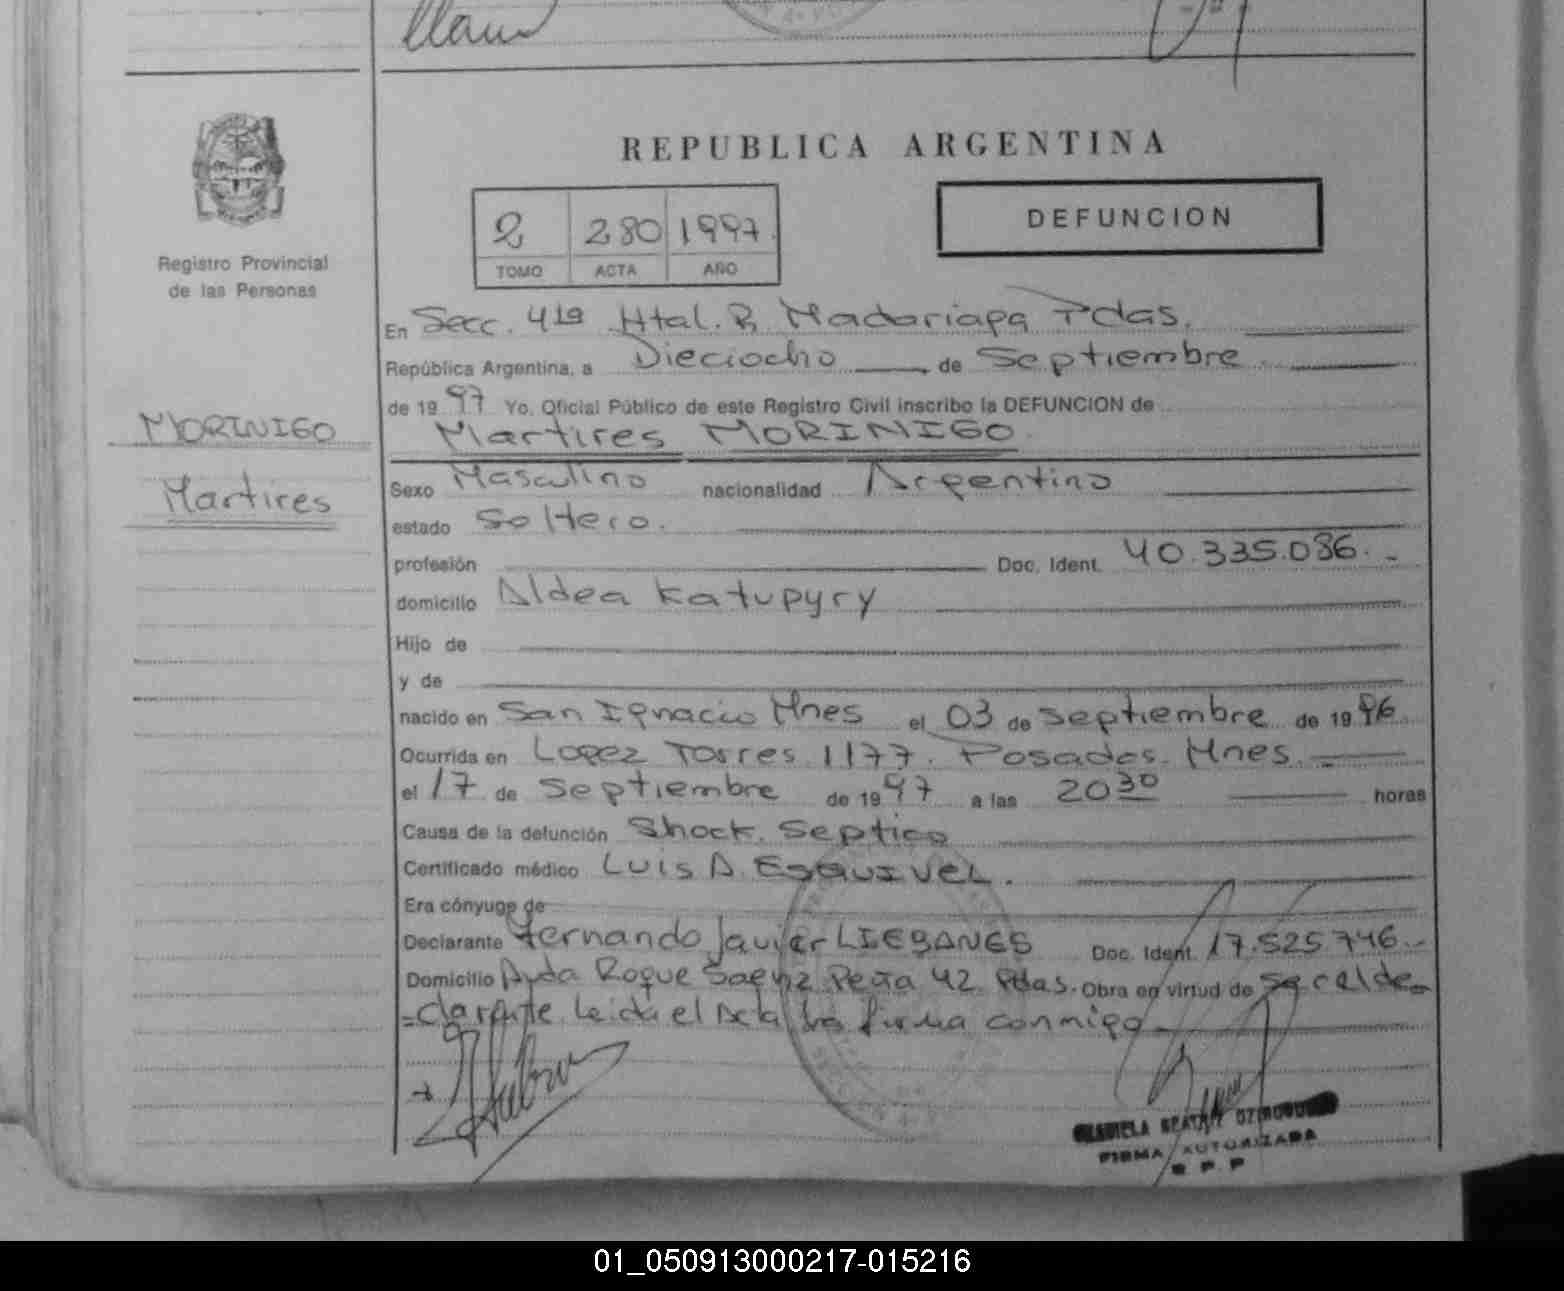 REPUBLICA ARGENTINA
Registro Provincial
de las Personas
2 280 1997
TOMO ACTA AÑO
DEFUNCION
MORINIGO
Martires
En Secc. 4ta Htal. R. Madariaga Pdas.
República Argentina, a Dieciocho de Septiembre
de 1997 Yo, Oficial Público de este Registro Civil inscribo la DEFUNCION de
Martires MORINIGO
Sexo Masculino nacionalidad Argentino
estado Soltero.
profesión Doc. Ident. 40.335.086.
domicilio Aldea Katupyry
Hijo de
y de
nacido en San Ignacio Mnes el 03 de Septiembre de 1996
Ocurrida en Lopez Torres 1177. Posadas. Mnes.
el 17 de Septiembre de 1997 a las 20 30 horas
Causa de la defunción Shock. Septico
Certificado médico Luis A. Esquivel.
Era cónyuge de
Declarante Fernando Javier LIEBANES Doc. Ident. 17.525.746.
Domicilio Avda Roque Saenz Peña 42 Pdas. Obra en virtud de ser el de-
=clarante Leida el Acta la firma conmigo
FIRMA AUTORIZADA
R P P
01_050913000217-015216